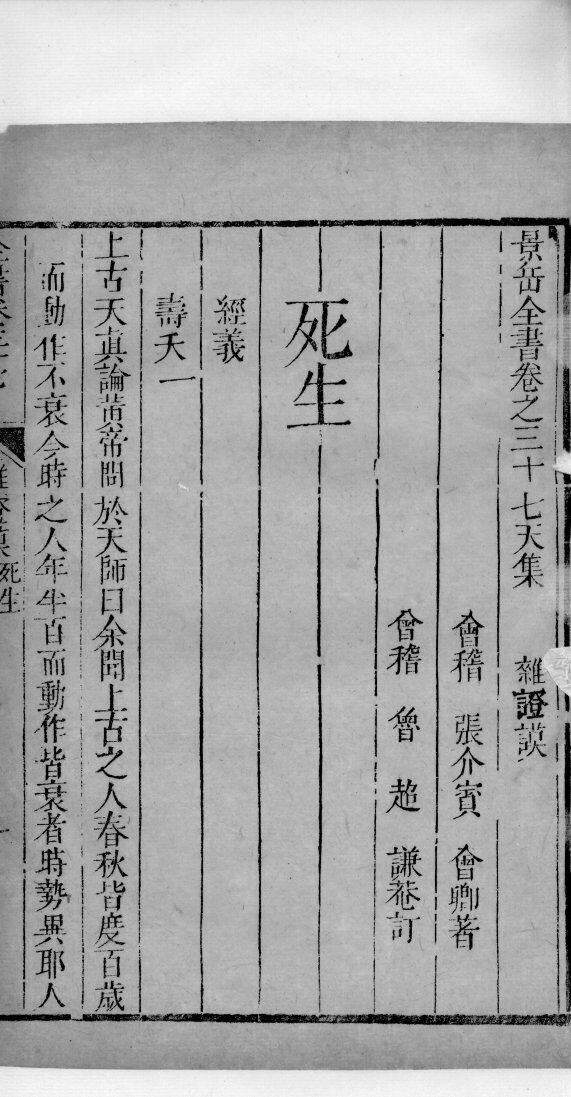 景岳全書卷之三十七天集 雜證謨
會稽 張介賓 會卿著
會稽 魯超 謙菴訂
死生
經義
壽夭一
上古天眞論黃帝問於天師曰余聞上古之人春秋皆度百歲
而動作不衰今時之人年半百而動作皆衰者時勢異耶人
全書卷三十七 雜證謨 死生